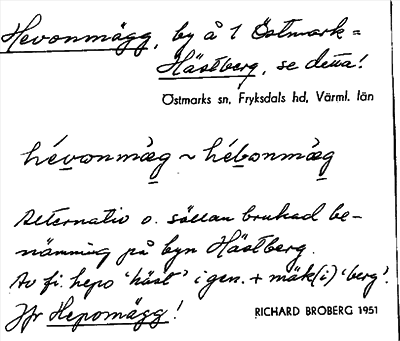 Hevonmägg, by å 1 Östmark=
Hästberg, se detta!
Östmarks sn, Fryksdals hd, Värml. län
hévonmäg ~ hébonmäg
Alternativ o. sällan brukad be-
nämning på byn Hästberg.
Av fi. hepo 'häst' i gen. + mäk(i) 'berg'.
Jfr Hepomägg!
RICHARD BROBERG 1951